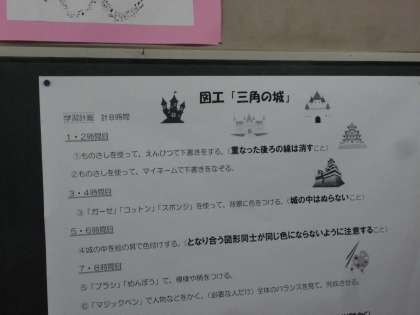 図工「三角の城」
学習計画 計8時間
1・2時間目
①ものさしを使って、えんぴつで下書きをする。(重なった後ろの線は消すこと)
②ものさしを使って、マイネームで下書きをなぞる。
3・4時間目
③「ガーゼ」「コットン」「スポンジ」を使って、背景に色をつける。(城の中はぬらないこと)
5・6時間目
④城の中を絵の具で色付けする。(となり合う図形同士が同じ色にならないように注意すること)
7・8時間目
⑤「ブラシ」「めんぼう」で、模様や柄をつける。
⑥「マジックペン」で人物などをかく。(必要な人だけ)全体のバランスを見て、完成させる。